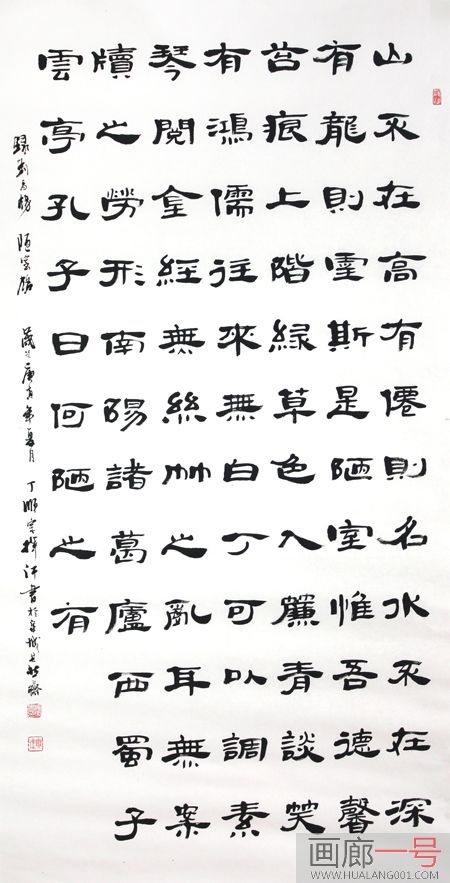 山不在高有僊則名水不在深
有龍則靈斯是陋室惟吾德馨
苔痕上階綠草色入簾青談笑
有鴻儒往來無白丁可以調素
琴閱金經無絲竹之亂耳無案
牘之勞形南陽諸葛廬西蜀子
雲亭孔子曰何陋之有
錄劉禹錫 陋室銘 歲次庚寅年夏月 丁 揮汗書於
画廊一号
WWW.HUALANG001.COM